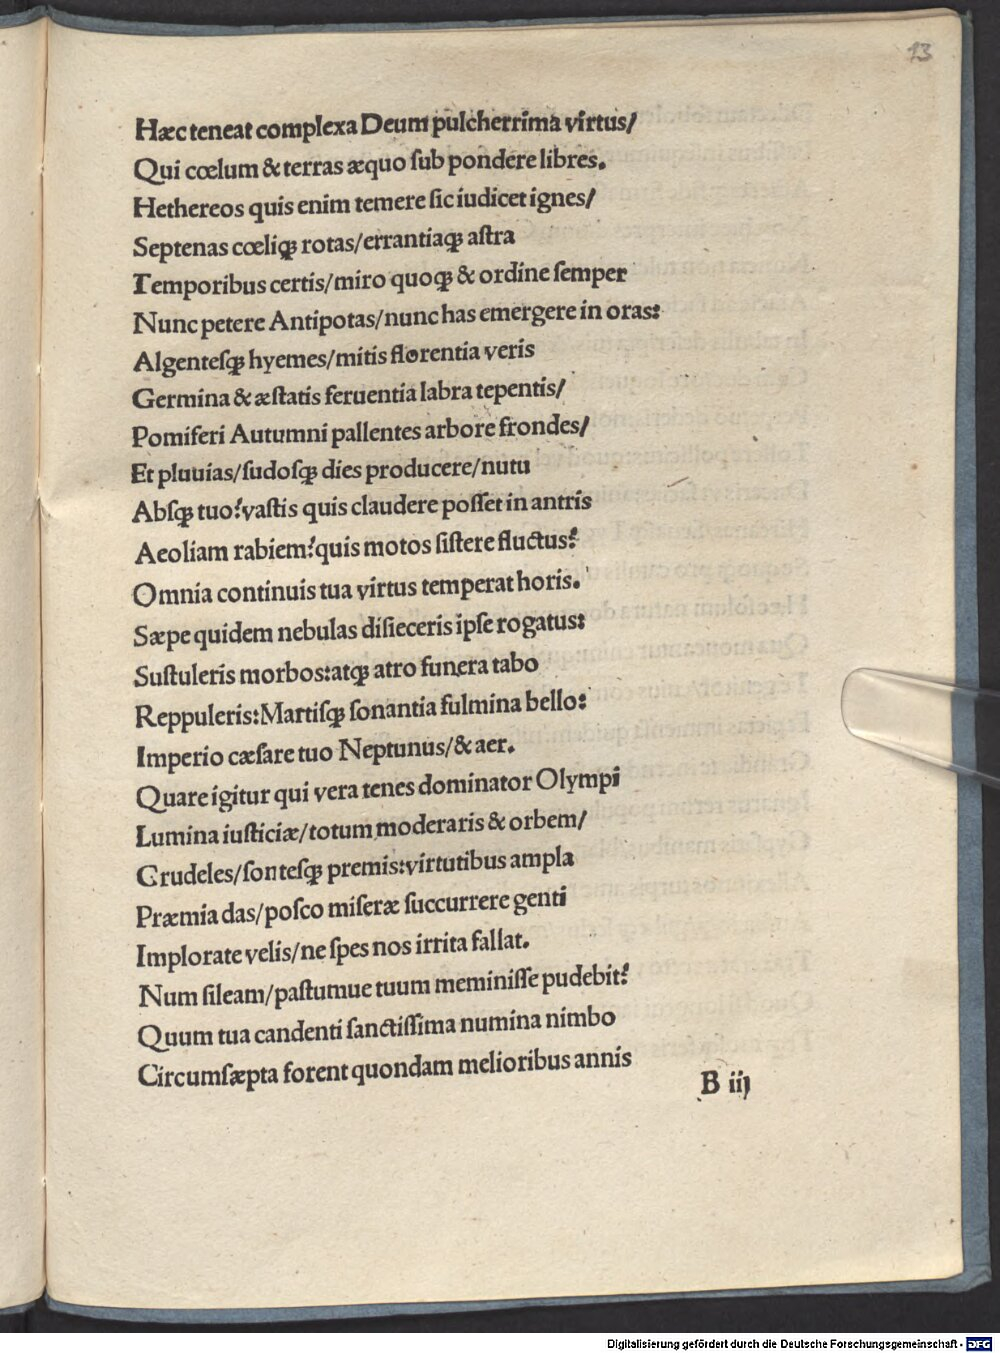 13
Hæc teneat complexa Deum pulcherrima virtus/
Qui cœlum & terras æquo ſub pondere libres.
Hethereos quis enim temere ſic iudicet ignes/
Septenas cœliqꝫ rotas/errantiaqꝫ aſtra
Temporibus certis/miro quoqꝫ & ordine ſemper
Nunc petere Antipotas/nunc has emergere in oras:
Algenteſqꝫ hyemes/mitis florentia veris
Germina & æſtatis feruentia labra tepentis/
Pomiferi Autumni pallentes arbore frondes/
Et pluuias/ſudoſqꝫ dies producere/nutu
Abſqꝫ tuo?vaſtis quis claudere poſſet in antris
Aeoliam rabiem?quis motos ſiſtere fluctus?
Omnia continuis tua virtus temperat horis.
Sæpe quidem nebulas diſieceris ipſe rogatus:
Suſtuleris morbos:atqꝫ atro funera tabo
Reppuleris:Martiſqꝫ ſonantia fulmina bello:
Imperio cæſare tuo Neptunus/& aer.
Quare igitur qui vera tenes dominator Olympi
Lumina iuſticiæ/totum moderaris & orbem/
Crudeles/ſonteſqꝫ premis:virtutibus ampla
Præmia das/poſco miſeræ ſuccurrere genti
Implorate velis/ne ſpes nos irrita fallat.
Num ſileam/paſtumue tuum meminiſſe pudebit?
Quum tua candenti ſanctiſſima numina nimbo
Circumſæpta forent quondam melioribus annis
B iij
Digitalisierung gefördert durch die Deutsche Forschungsgemeinschaft - DFG